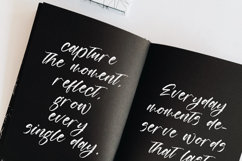 capture
the moment,
reflect,
grow
every
single day.
Everyday
moments de-
serve words
that last